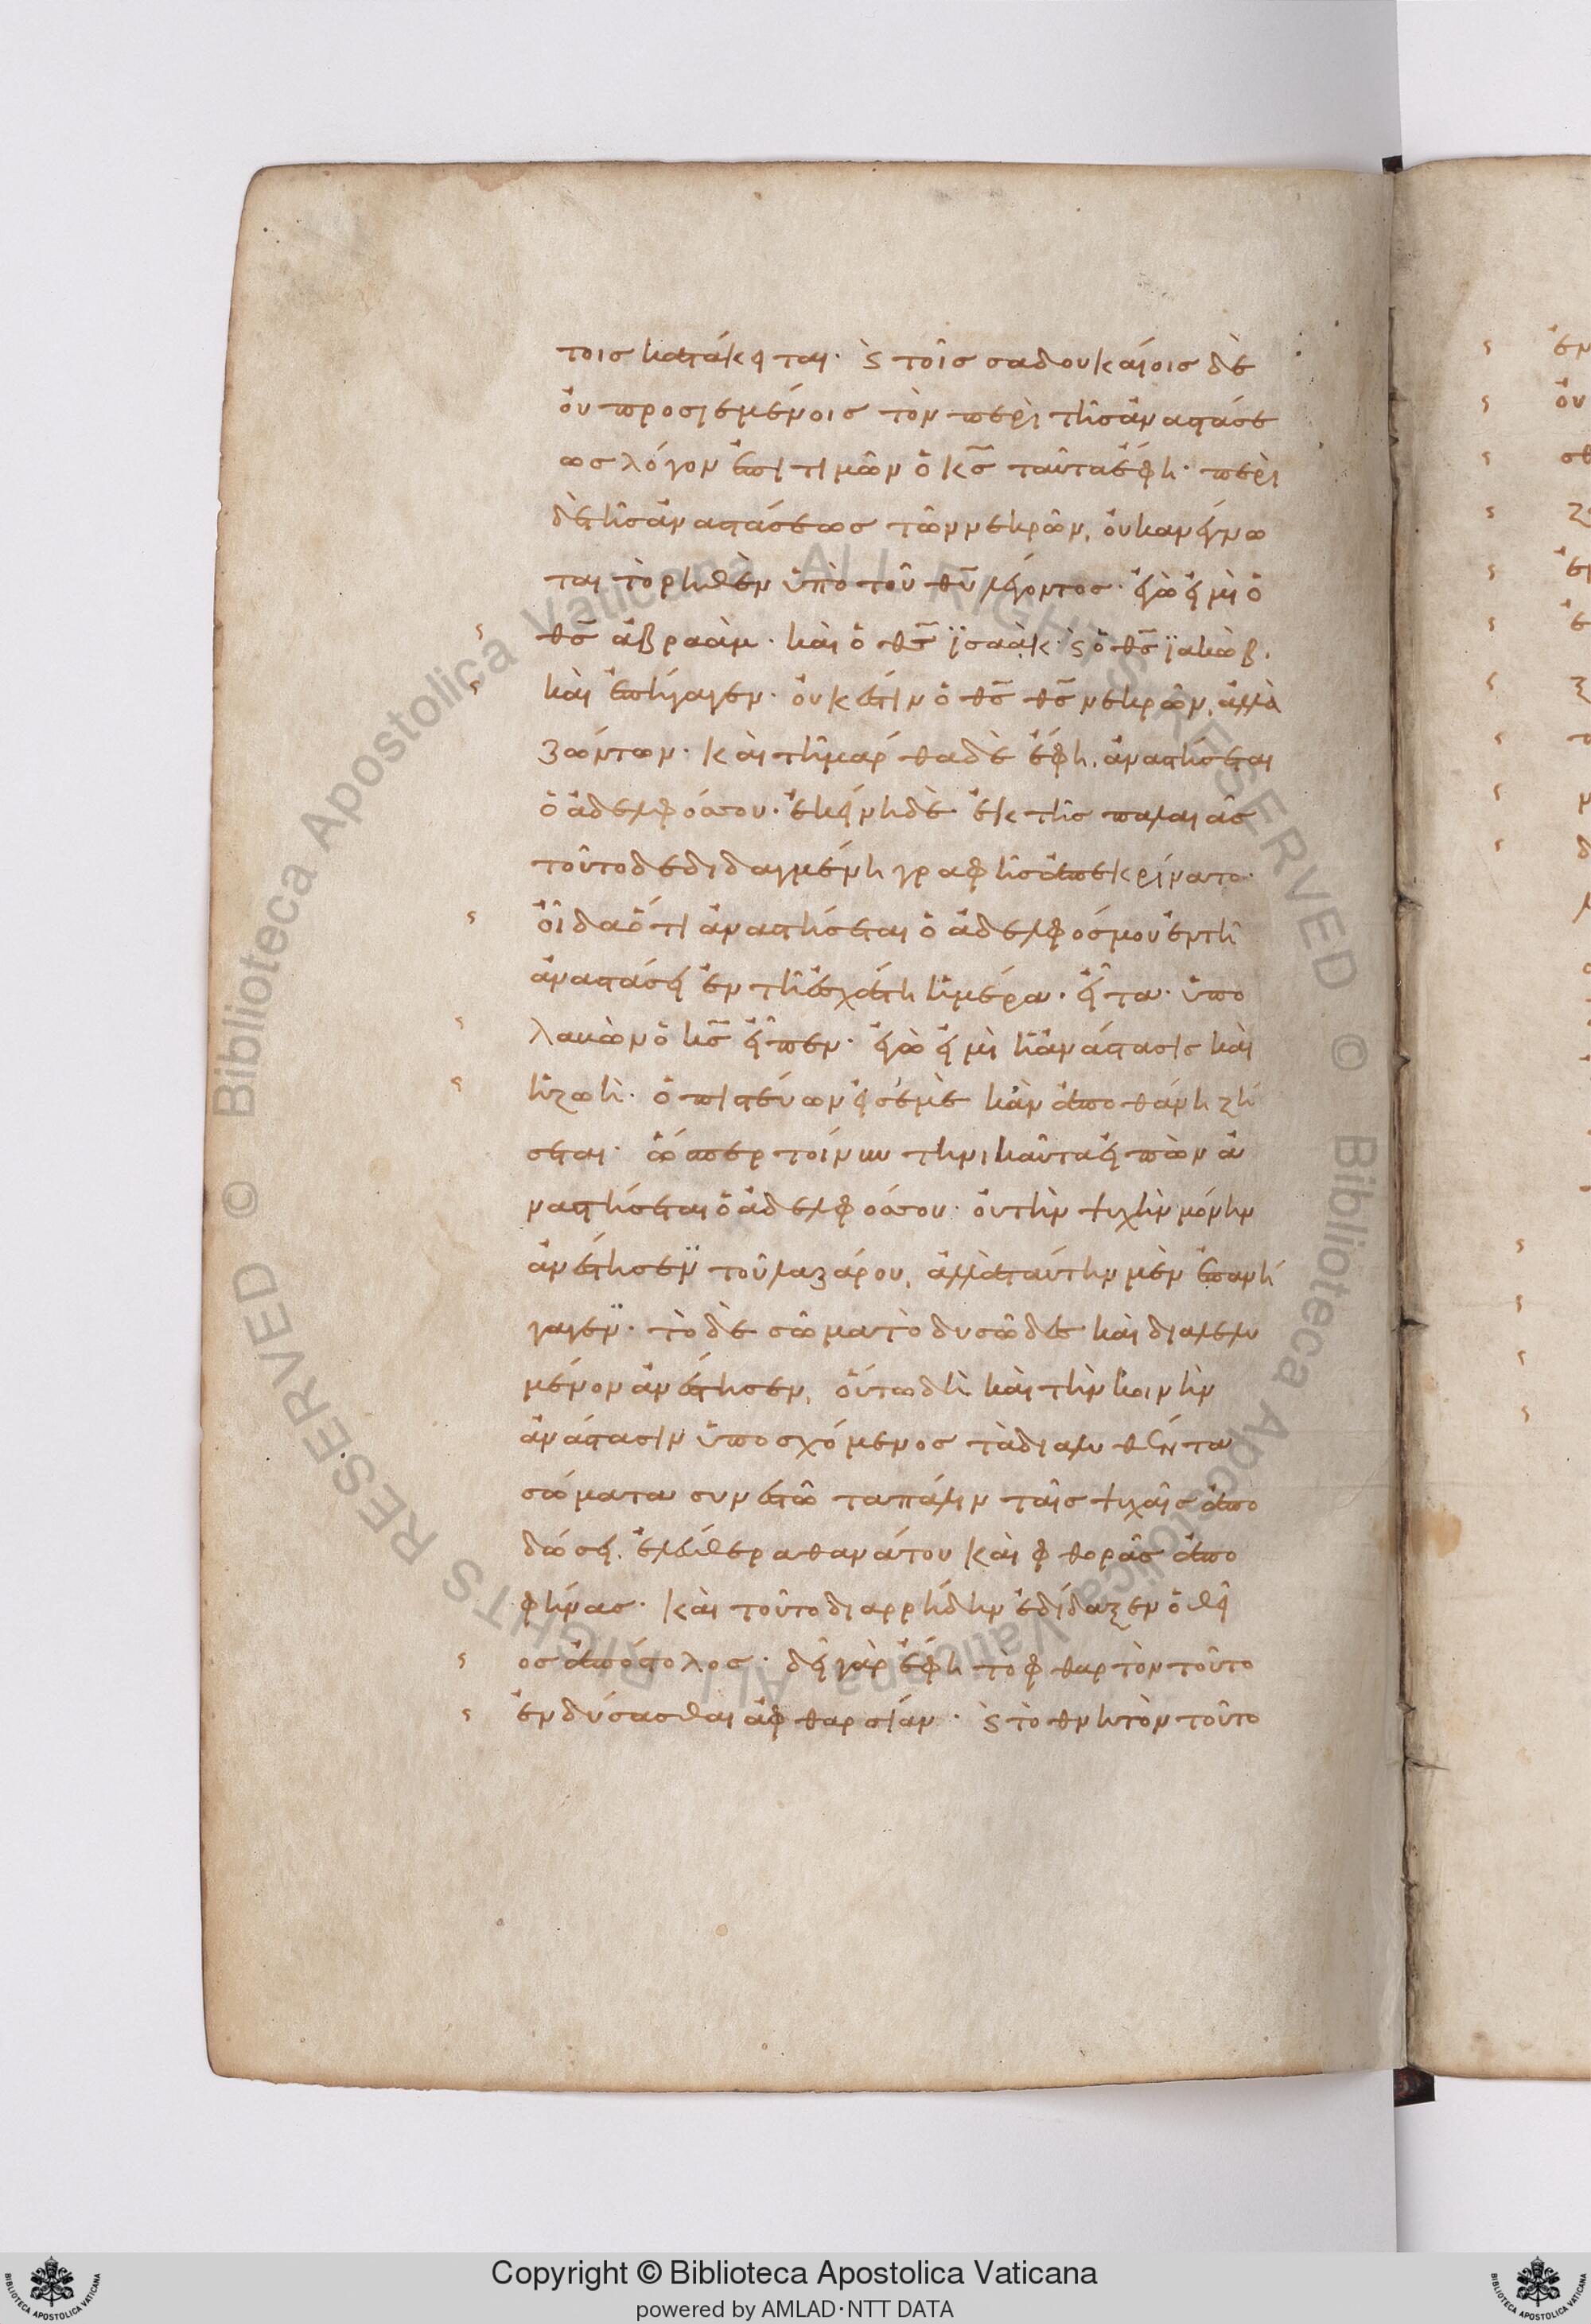 τοις κατάκειται· ϛ τοῖς σαδουκάιοις δὲ
ὀυ προσιεμένοις τὸν περὶ τῆς ἀναστάσε
ως λόγον ἐπιτιμῶν ὁ κ̅ς̅ ταῦτα ἔφη· περὶ
δὲ τῆς ἀναστάσεως τῶν νεκρῶν, ὀυκ ἀνέγνω
ται τὸ ρηθὲν ὑπὸ τοῦ θ̅υ̅ λέγοντος· ἐγὼ εἰμὶ ὁ
θ̅ς̅ ἀβραὰμ· καὶ ὁ θ̅ς̅ ϊσαὰκ· ϛ ὁ θ̅ς̅ ϊακὼβ.
καὶ ἐπήγαγεν· ὀυκ ἔστιν ὁ θ̅ς̅ θ̅ς̅ νεκρῶν, ἀλλὰ
ζώντων· καὶ τῆ μάρθα δὲ ἔφη, ἀναστήσεται
ὁ ἀδελφόσ σου· ἐκείνη δὲ ἐκ τῆς παλαιᾶς
τοῦτο δεδιδαγμένη γραφῆς ἀπεκρίνατο·
ὀῖδα ὅτι ἀναστήσεται ὁ ἀδελφός μου ἐν τῆ
ἀναστάσει ἐν τῆ ἐσχάτη ἡμέρα· εἶτα ὑπο
λαβὼν ὁ κ̅ς̅ εἶπεν· ἐγὼ εἰμὶ ἡ ἀνάστασις καὶ
ἡ ζωὴ· ὁ πιστεύων εἰς ἐμὲ κἂν ἀποθάνη ζή
σεται· ὥσπερ τοίνυν τηνικαῦτα εἰπὼν ἀ
ναστήσεται ὁ ἀδελφόσ σου· ὀυ τὴν ψυχὴν μόνην
ἀνέστησεν τοῦ λαζάρου, ἀλλὰ ταύτην μὲν ἐπανή
γαγεν· τὸ δὲ σῶμα τὸ δυσῶδες καὶ διαλελυ
μένον ἀνέστησεν, ὅυτω δὴ καὶ τὴν κοινὴν
ἀνάστασιν ὑποσχόμενος τὰ διαλυθέντα
σώματα συνεστῶτα πάλιν ταῖς ψυχαῖς ἀπο
δώσει, ἐλεύθερα θανάτου καὶ φθορᾶς ἀπο
φήνας· καὶ τοῦτο διαρρήδην ἐδίδαξεν ὁ θεῖ
ος ἀπόστολος· δεῖ γὰρ ἔφη τὸ φθαρτὸν τοῦτο
ἐνδύσασθαι ἀφθαρσίαν· ϛ τὸ θνητὸν τοῦτο
Copyright © Biblioteca Apostolica Vaticana
powered by AMLAD·NTT DATA